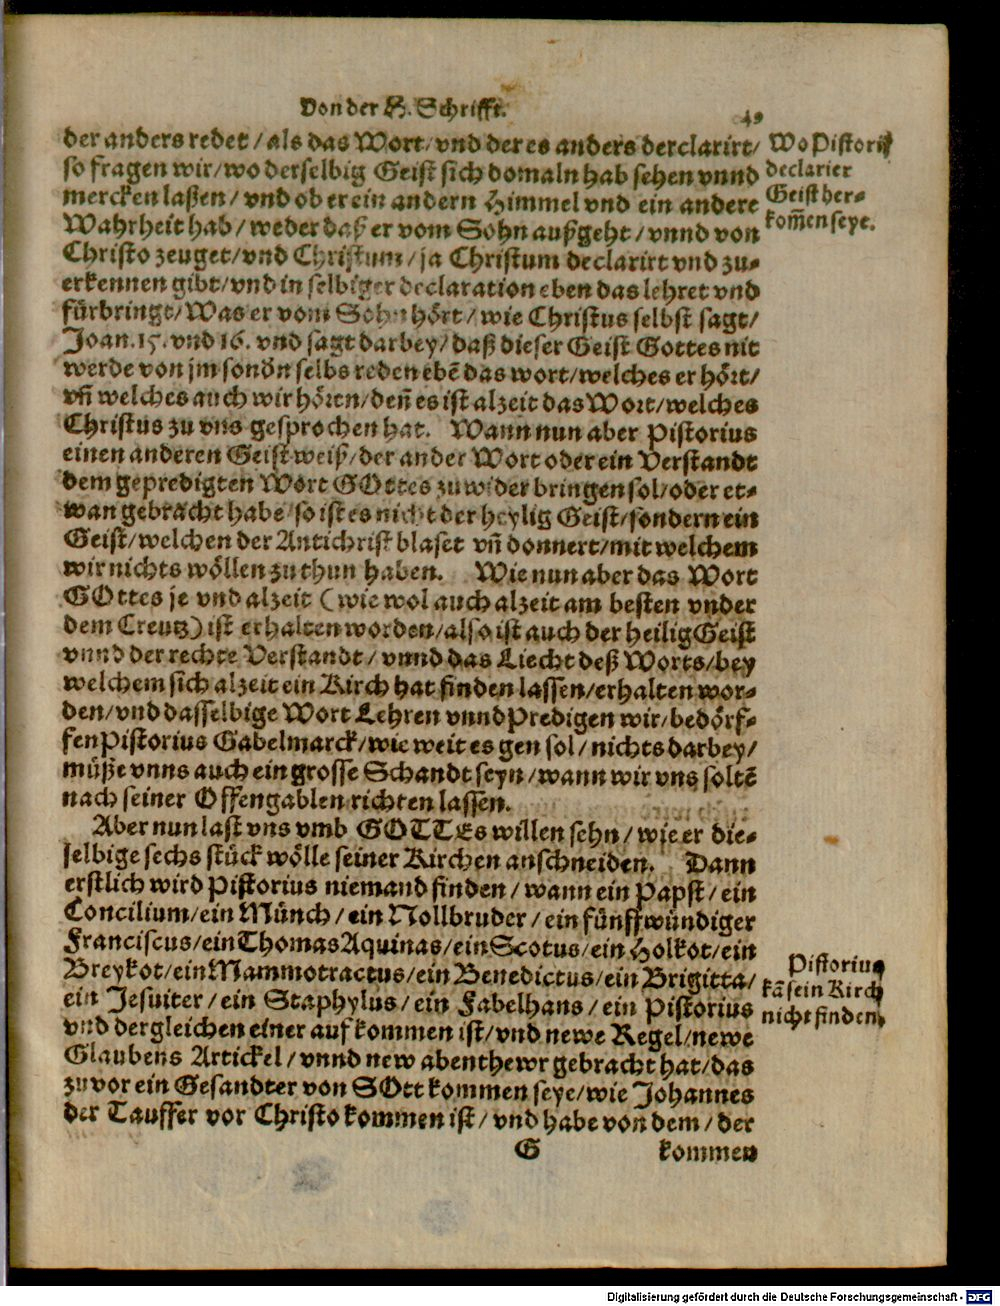 Von der H. Schrifft.
49
der anders redet / als das Wort / vnd der es anders derclarirt /
so fragen wir / wo derselbig Geist sich domaln hab sehen vnnd
mercken laßen / vnd ob er ein andern Himmel vnd ein andere
Wahrheit hab / weder daß er vom Sohn außgeht / vnnd von
Christo zeuget / vnd Christum / ja Christum declarirt vnd zu-
erkennen gibt / vnd in selbiger declaration eben das lehret vnd
fürbringt / Was er vom Sohn hört / wie Christus selbst sagt /
Joan. 15. vnd 16. vnd sagt darbey / daß dieser Geist Gottes nit
werde von jm sonðn selbs reden ebē das wort / welches er hört /
vn̄ welches auch wir hörtn / den̄ es ist alzeit das Wort / welches
Christus zu vns gesprochen hat. Wann nun aber Pistorius
einen anderen Geist weiß / der ander Wort oder ein Verstandt
dem gepredigten Wort GOttes zuwider bringen sol / oder et-
wan gebracht habe / so ist es nicht der heylig Geist / sondern ein
Geist / welchen der Antichrist blaset vn̄ donnert / mit welchem
wir nichts wöllen zu thun haben. Wie nun aber das Wort
GOttes je vnd alzeit ( wie wol auch alzeit am besten vnder
dem Creutz ) ist erhalten worden / also ist auch der heilig Geist
vnnd der rechte Verstandt / vnnd das Liecht deß Worts / bey
welchem sich alzeit ein Kirch hat finden lassen / erhalten wor-
den / vnd dasselbige Wort Lehren vnnd Predigen wir / bedörf-
fen Pistorius Gabelmarck / wie weit es gen sol / nichts darbey /
müße vnns auch ein grosse Schandt seyn / wann wir vns soltē
nach seiner Offengablen richten lassen.
Aber nun last vns vmb GOTTEs willen sehn / wie er die-
selbige sechs stück wölle seiner Kirchen anschneiden. Dann
erstlich wird Pistorius niemand finden / wann ein Papst / ein
Concilium / ein Münch / ein Nollbruder / ein fünffwündiger
Franciscus / ein Thomas Aquinas / ein Scotus / ein Holkot / ein
Breykot / ein Mammotractus / ein Benedictus / ein Brigitta /
ein Jesuiter / ein Staphylus / ein Fabelhans / ein Pistorius
vnd dergleichen einer aufkommen ist / vnd newe Regel / newe
Glaubens Artickel / vnnd new abenthewr gebracht hat / das
zuvor ein Gesandter von GOtt kommen seye / wie Johannes
der Tauffer vor Christo kommen ist / vnd habe von dem / der
G
kommen
Wo Pistorij
declarier
Geist her-
kom̄en seye.
Pistorius
kā sein Kirch
nicht finden.
Digitalisierung gefördert durch die Deutsche Forschungsgemeinschaft - DFG